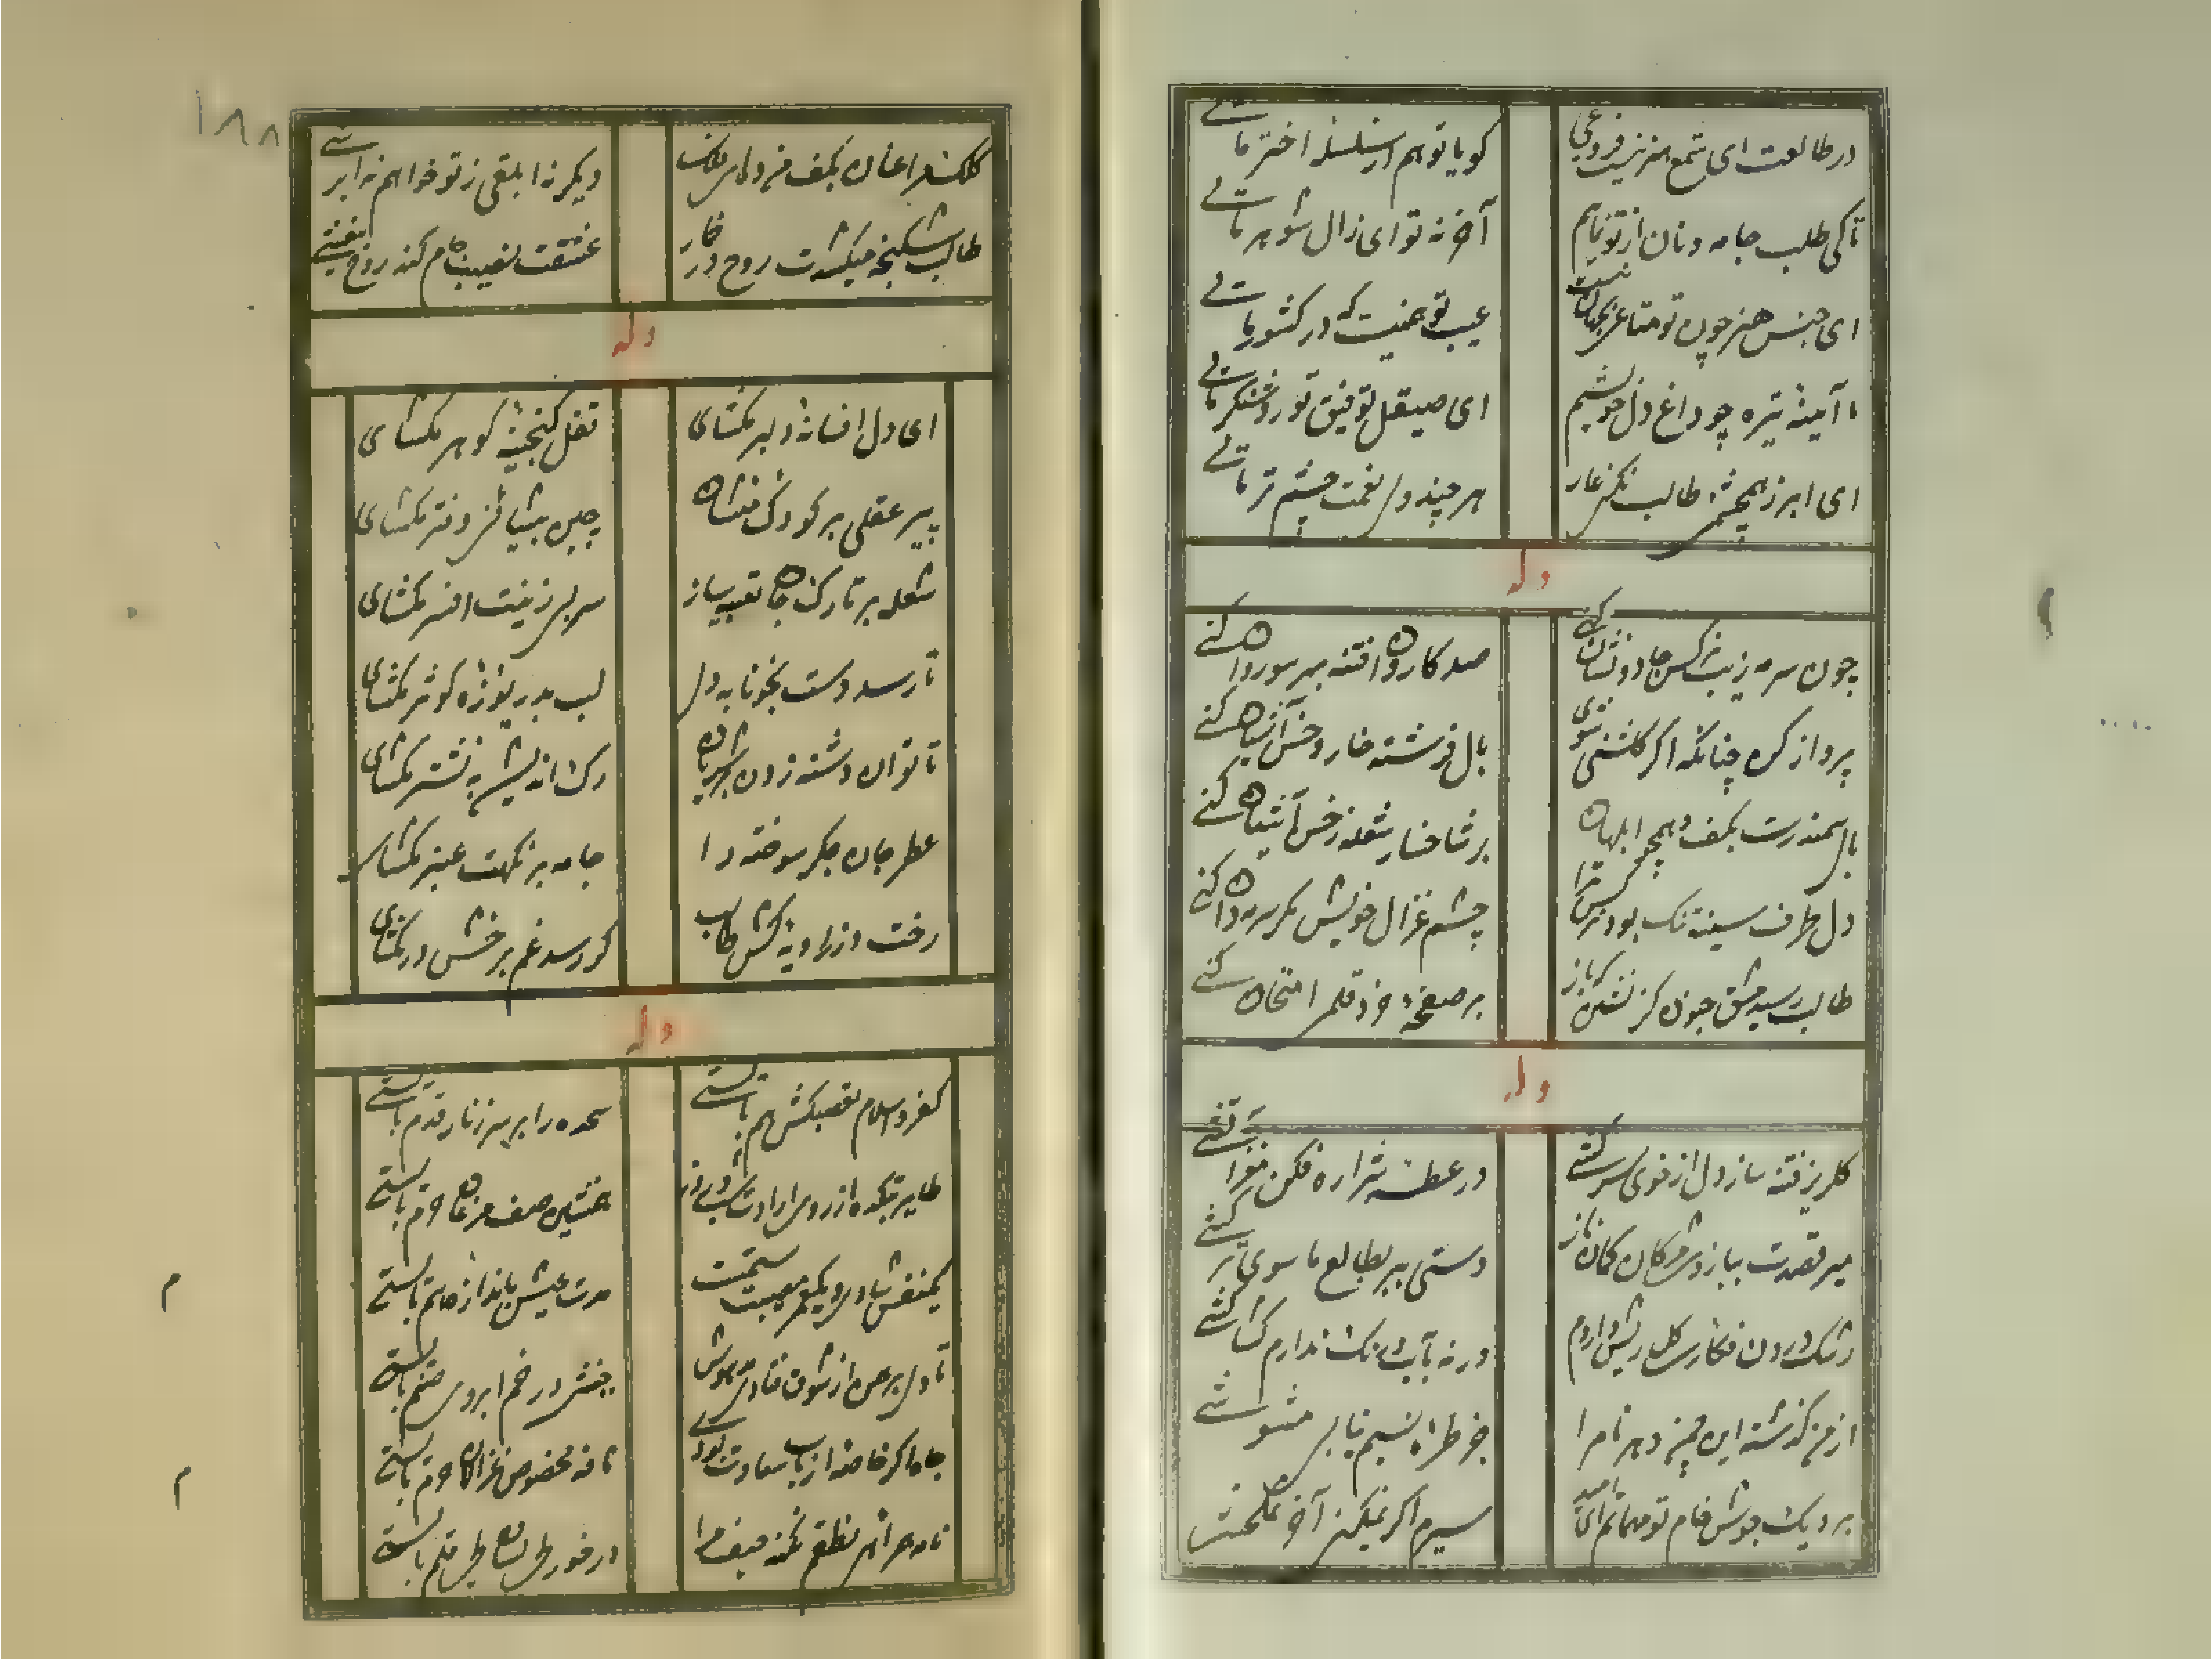 در طالعت ای شمع هنر نیست فروغی
گویا تو هم از سلسله اختر مائی
تا کی طلب جامه و نان از تو نمایم
آخر نه تو ای زال شوهر مائی
ای جنس هنر چون تو متاعی بجهان نیست
عیب تو همینست که در کشور مائی
ما آینه تیره چو داغ دل خویشیم
ای صیقل توفیق تو روشنگر مائی
ای ابر ز همچشمی طالب نکنی عار
هر چند ولی نعمت چشم تر مائی
وله
چون سرمه زیب نرگس جادو نشان کنی
صد کاروان فتنه بهر سو روان کنی
پرواز کن چنانکه اگر گلشنی شوی
بال فرشته خار و خس آشیان کنی
بال سمندرت بکف و همچو ابلهان
بر شاخسار شعله ز خس آشیان کنی
دل طرف سینه تنگ بود
چشم غزال خویش مگر سرمه دان کنی
طالب رسید مشق جنون
بر صفحه خرد قلمی امتحان کنی
وله
گلریز فتنه ساز دل از خوی سرکشی
در عطسه شراره فکن مغز آتشی
میر قصدت ببازوی مژگان کمان ناز
دستی ببر بطالع ما سوی ترکشی
رشک درون فگار گل ریش دارم
ورنه بآب و رنگ ندارم کشاکشی
از من گذشته این چمن دهر نامرا
جز طره نسیم نیابی مشوشی
بر دیک جوش خام تو مهمانم ای امید
سیرم اگر نمیکنی آخر نمک چشی
۱۸۸
دیگر نه ابلقی ز تو خواهم نه ابرشی
طالب شکنجه میکشدت روح در خمار
عشقت نصیب جام کند روح بیغشی
وله
ای دل افسانه دلبر مگشای
قفل گنجینه گوهر مگشای
پیر عقلی بر کودک منشان
چین پیشانی دفتر مگشای
شعله بر تارک جان تعبیه ساز
سر پی زینت افسر مگشای
تا رسد دست بخونابه دل
لب بدریوزه کوثر مگشای
تا توان دشنه زدن بر شریان
رگ اندیشه به نشتر مگشای
عطر جان جگر سوخته را
جامه بر نکهت عنبر مگشای
رخت در زاویه کش طالب
گر رسد غم برخش در مگشای
وله
کفر و اسلام بیک کش هم بایستی
سجده را بر سر زنار قدم بایستی
طایر بتکده از روی ارادت
همنشین صف مرغان حرم بایستی
یکنفس شادی و یکعمر مصیبت ستمست
مدت عیش باندازه ماتم بایستی
تا دل برهمن از شوق فتادی مدهوش
جنبشی در خم ابروی صنم بایستی
جام اگر خاصه ارباب سعادت بودی
نافه مخصوص غزالان حرم بایستی
نامه هر اثر نطقم نکند صیف مرا
در خور طی لسان طی قلم بایستی